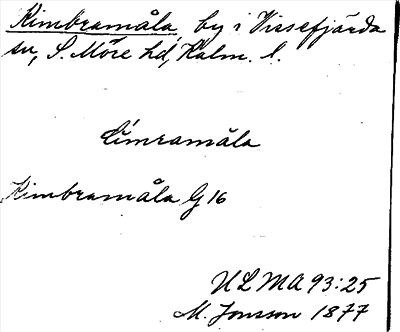 Kimbramåla by i Vissefjärda
sn, S. Möre hd, Kalm. l.
Kimbramåla G 16
ULMA 93:25
M. Jonsson 1877